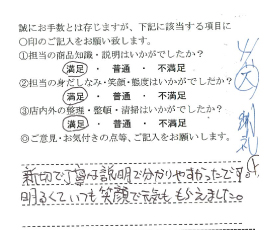 誠にお手数とは存じますが、下記に該当する項目に
〇印のご記入をお願い致します。
①担当の商品知識・説明はいかがでしたか?
満足 ・ 普通 ・ 不満足
②担当の身だしなみ・笑顔・態度はいかがでしたか?
満足 ・ 普通 ・ 不満足
③店内外の整理・整頓・清掃はいかがでしたか?
満足 ・ 普通 ・ 不満足
◎ご意見・お気付きの点等、ご記入をお願い致します。
親切で丁寧な説明で分かりやすかったです。
明るくていつも笑顔で元気ももらえました。